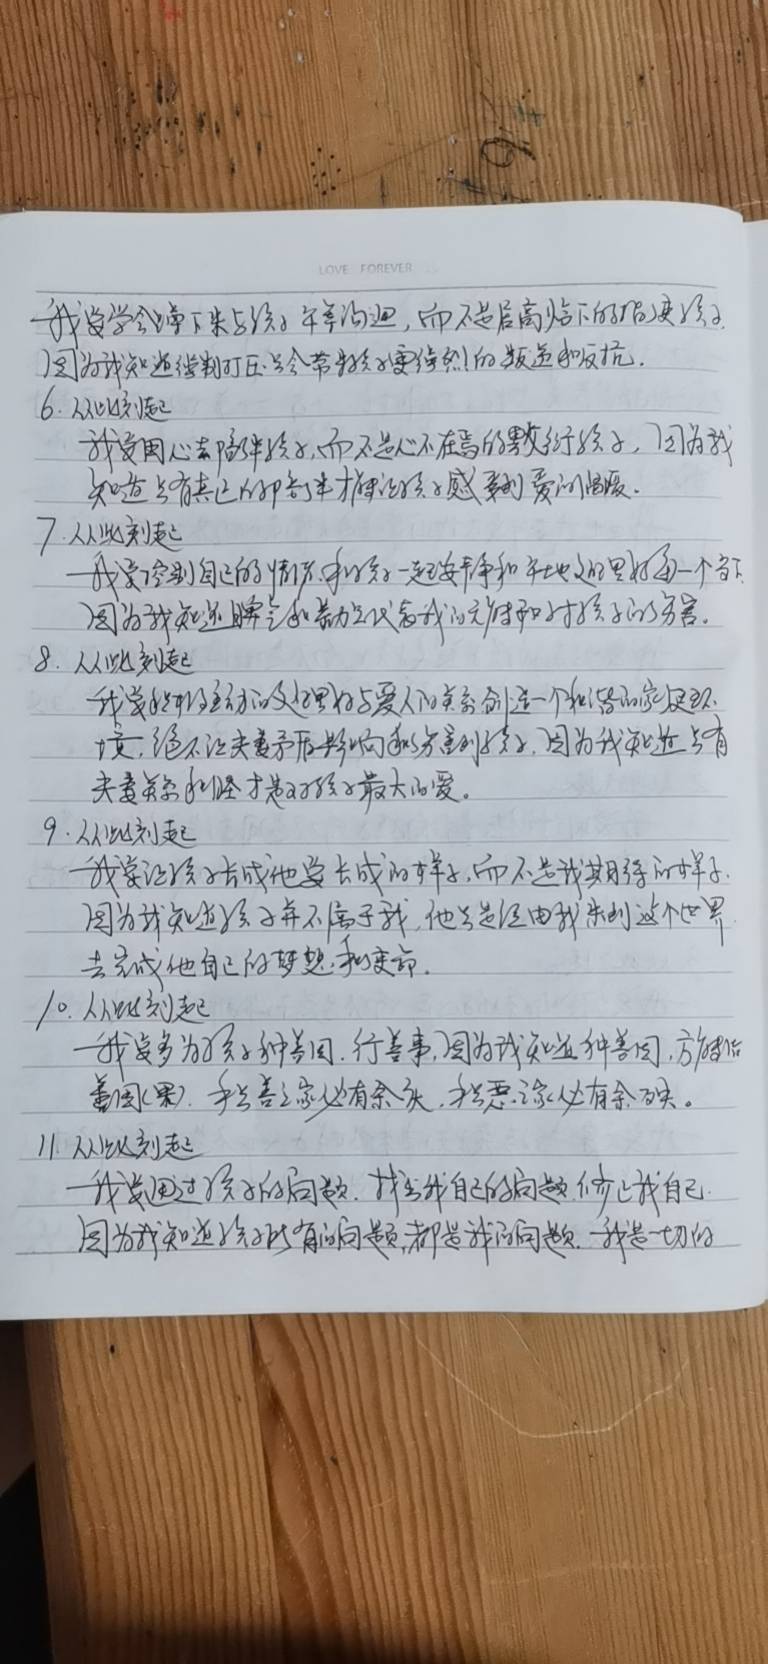 LOVE FOREVER
我要学会蹲下来与孩子平等沟通,而不是居高临下的指责孩子.
因为我知道批判打压只会带给孩子更强烈的叛逆和反抗.
6.从此刻起
我要用心去陪伴孩子,而不是心不在焉的敷衍孩子,因为我
知道只有真正的陪伴才能让孩子感受到爱的温暖.
7.从此刻起
我要控制自己的情绪.和孩子一起安静和平地处理好每一个当下
因为我知道脾气和暴力只代表我的无能和对孩子的伤害。
8.从此刻起
我要积极主动的处理好与爱人的关系创造一个和谐的家庭环
境,绝不让夫妻矛盾影响和伤害到孩子,因为我知道只有
夫妻关系和睦才是对孩子最大的爱。
9.从此刻起
我要让孩子长成他要长成的样子,而不是我期待的样子.
因为我知道孩子并不属于我,他只是经由我来到这个世界
去完成他自己的梦想和使命.
10.从此刻起
我要多为孩子种善因.行善事,因为我知道种善因,方能结
善因(果).积善之家必有余庆.积恶之家必有余殃。
11.从此刻起
我要通过孩子的问题.找到我自己的问题.修正我自己.
因为我知道孩子所有的问题,都是我的问题.我是一切的